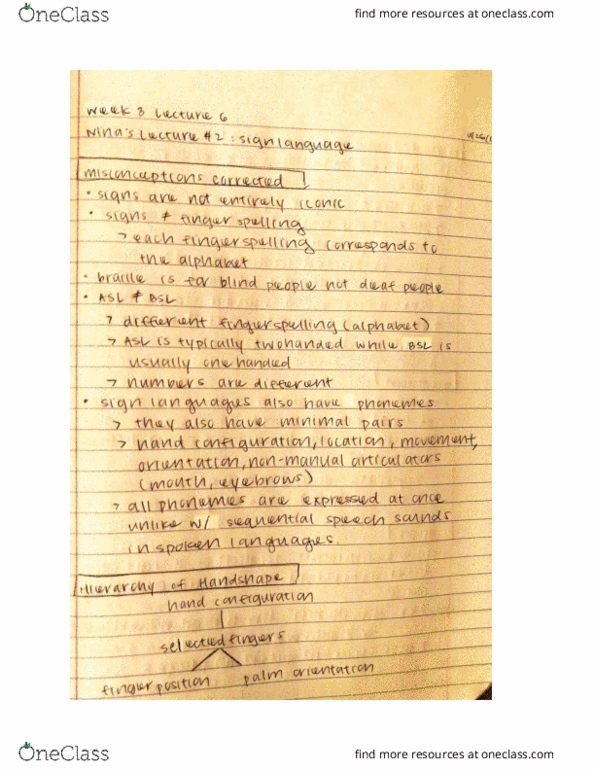 OneClass
find more resources at oneclass.com
Week 3 Lecture 6
Nina's Lecture #2 : sign language
misconceptions corrected
• signs are not entirely iconic
• signs ≠ fingerspelling
> each fingerspelling corresponds to
the alphabet
• braille is for blind people not deaf people
• ASL ≠ BSL
> different fingerspelling (alphabet)
> ASL is typically twohanded while BSL is
usually one handed
> numbers are different
• sign languages also have phonemes
> they also have minimal pairs
> hand configuration, location, movement,
orientation, non-manual articulators
(mouth, eyebrows)
> all phonemes are expressed at once
unlike w/ sequential speech sounds
in spoken languages.
Hierarchy of Handshape
hand configuration
selected fingers
finger position palm orientation
OneClass
find more resources at oneclass.com